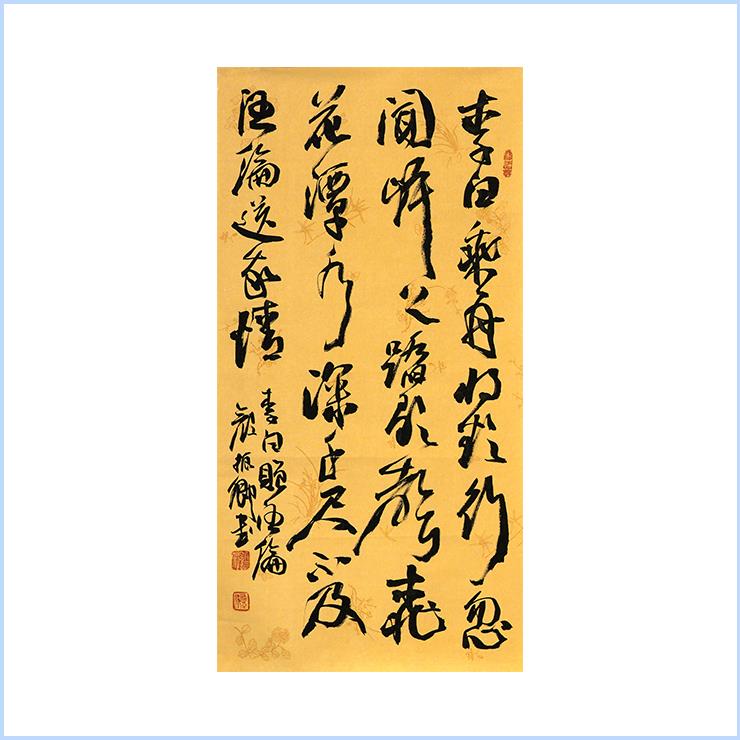 李白乘舟将欲行忽
闻岸上踏歌声桃
花潭水深千尺不及
汪倫送我情
李白贈汪倫
振卿书